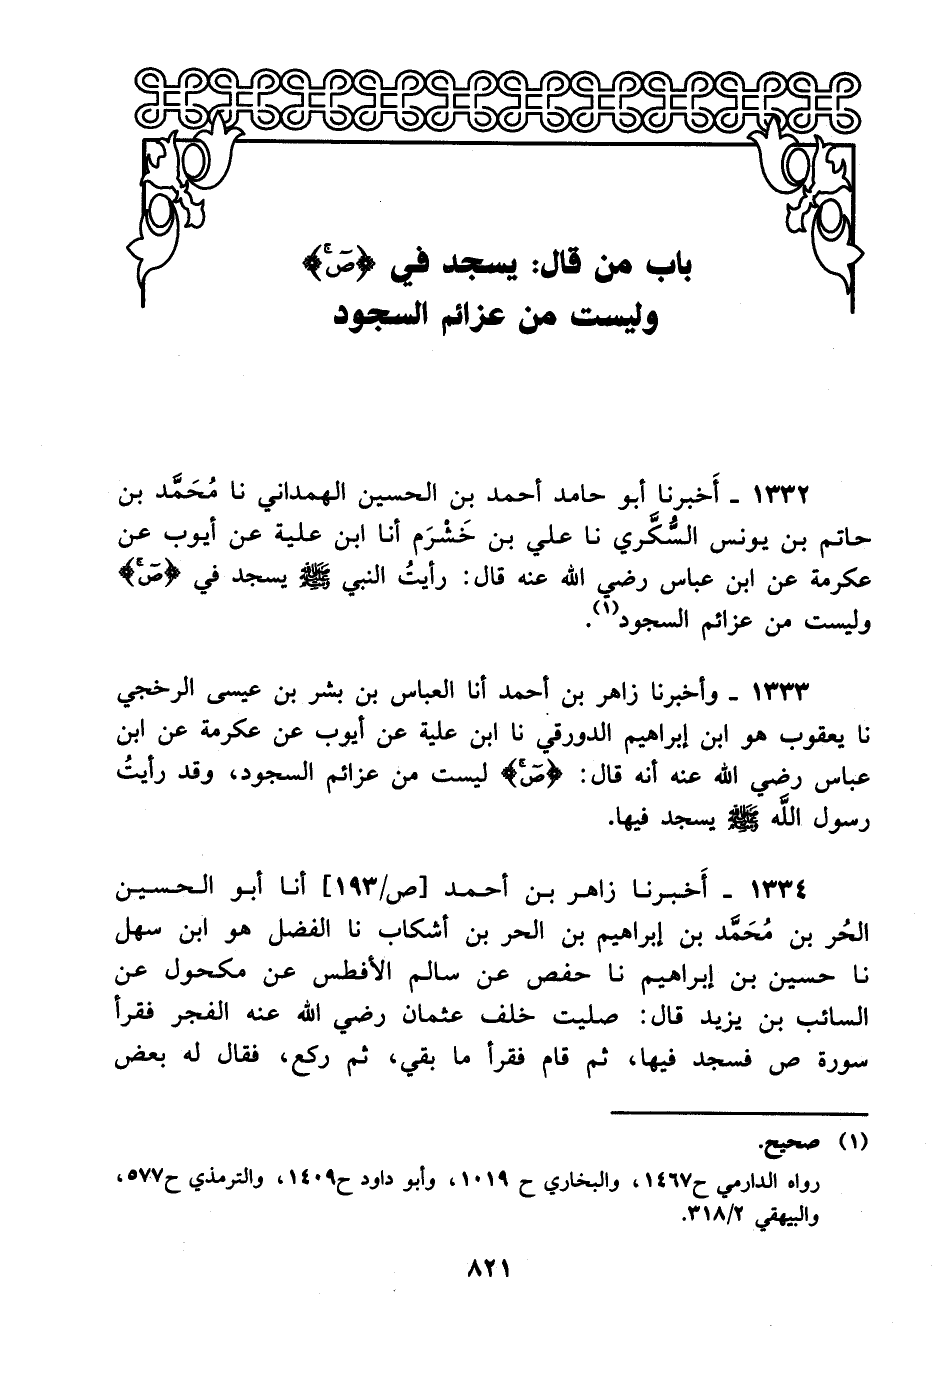 باب من قال: يسجد في ﴿صٓ ۚ﴾
وليست من عزائم السجود
١٣٣٢ ـ أَخبرنا أبو حامد أحمد بن الحسين الهمداني نا مُحَمَّد بن
حاتم بن يونس السُّكَّري نا علي بن خَشْرَم أنا ابن علية عن أيوب عن
عكرمة عن ابن عباس رضي الله عنه قال: رأيتُ النبي ﷺ يسجد في ﴿صٓ ۚ﴾
وليست من عزائم السجود(١).
١٣٣٣ ـ وأخبرنا زاهر بن أحمد أنا العباس بن بشر بن عيسى الرخجي
نا يعقوب هو ابن إبراهيم الدورقي نا ابن علية عن أيوب عن عكرمة عن ابن
عباس رضي الله عنه أنه قال: ﴿صٓ ۚ﴾ ليست من عزائم السجود، وقد رأيتُ
رسول اللَّه ﷺ يسجد فيها.
١٣٣٤ ـ أَخبرنا زاهر بن أحمد [ص/١٩٣] أنا أبو الحسين
الحُر بن مُحَمَّد بن إبراهيم بن الحر بن أشكاب نا الفضل هو ابن سهل
نا حسين بن إبراهيم نا حفص عن سالم الأفطس عن مكحول عن
السائب بن يزيد قال: صليت خلف عثمان رضي الله عنه الفجر فقرأ
سورة ص فسجد فيها، ثم قام فقرأ ما بقي، ثم ركع، فقال له بعض
(١) صحيح.
رواه الدارمي ح١٤٦٧، والبخاري ح ١٠١٩، وأبو داود ح١٤٠٩، والترمذي ح٥٧٧،
والبيهقي ٣١٨/٢.
٨٢١